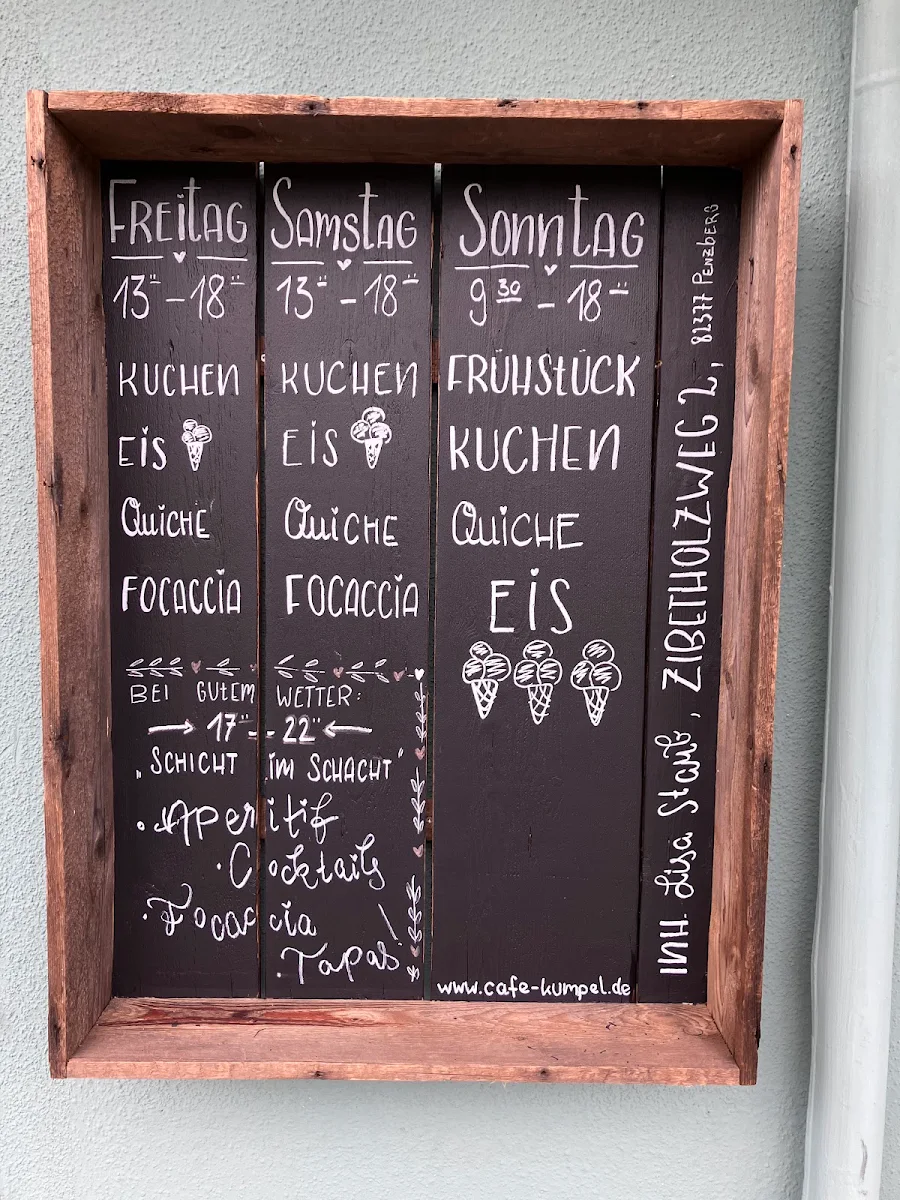 FREITAG
13°° - 18°°
KUCHEN
EIS
QUICHE
FOCACCIA
SAMSTAG
13°° - 18°°
KUCHEN
EIS
QUICHE
FOCACCIA
BEI GUTEM WETTER:
→ 17°° - 22°° ←
„SCHICHT IM SCHACHT“
• Aperitif
• Cocktails
• Focaccia
• Tapas
SONNTAG
9 30 - 18°°
FRÜHSTÜCK
KUCHEN
QUICHE
EIS
www.cafe-kumpel.de
INH. Lisa Staub, ZIBETHOLZWEG 2, 82377 PENZBERG